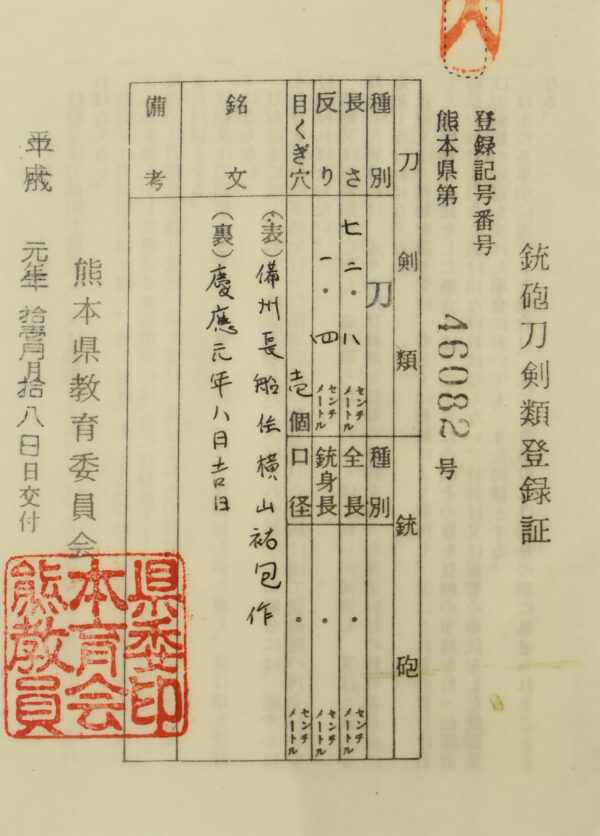 銃砲刀剣類登録証
登録記号番号
熊本県第 46082 号
刀剣類
銃砲
種別 刀
種別
長さ 七二・八 センチメートル
全長 ・ センチメートル
反り 一・四 センチメートル
銃身長 ・ センチメートル
目くぎ穴 壱個
口径 ・ センチメートル
銘文
(表)備州長船住横山祐包作
(裏)慶應元年八月吉日
備考
熊本県教育委員会
平成 元年 拾壱月拾八日交付
熊本県教育委員会印